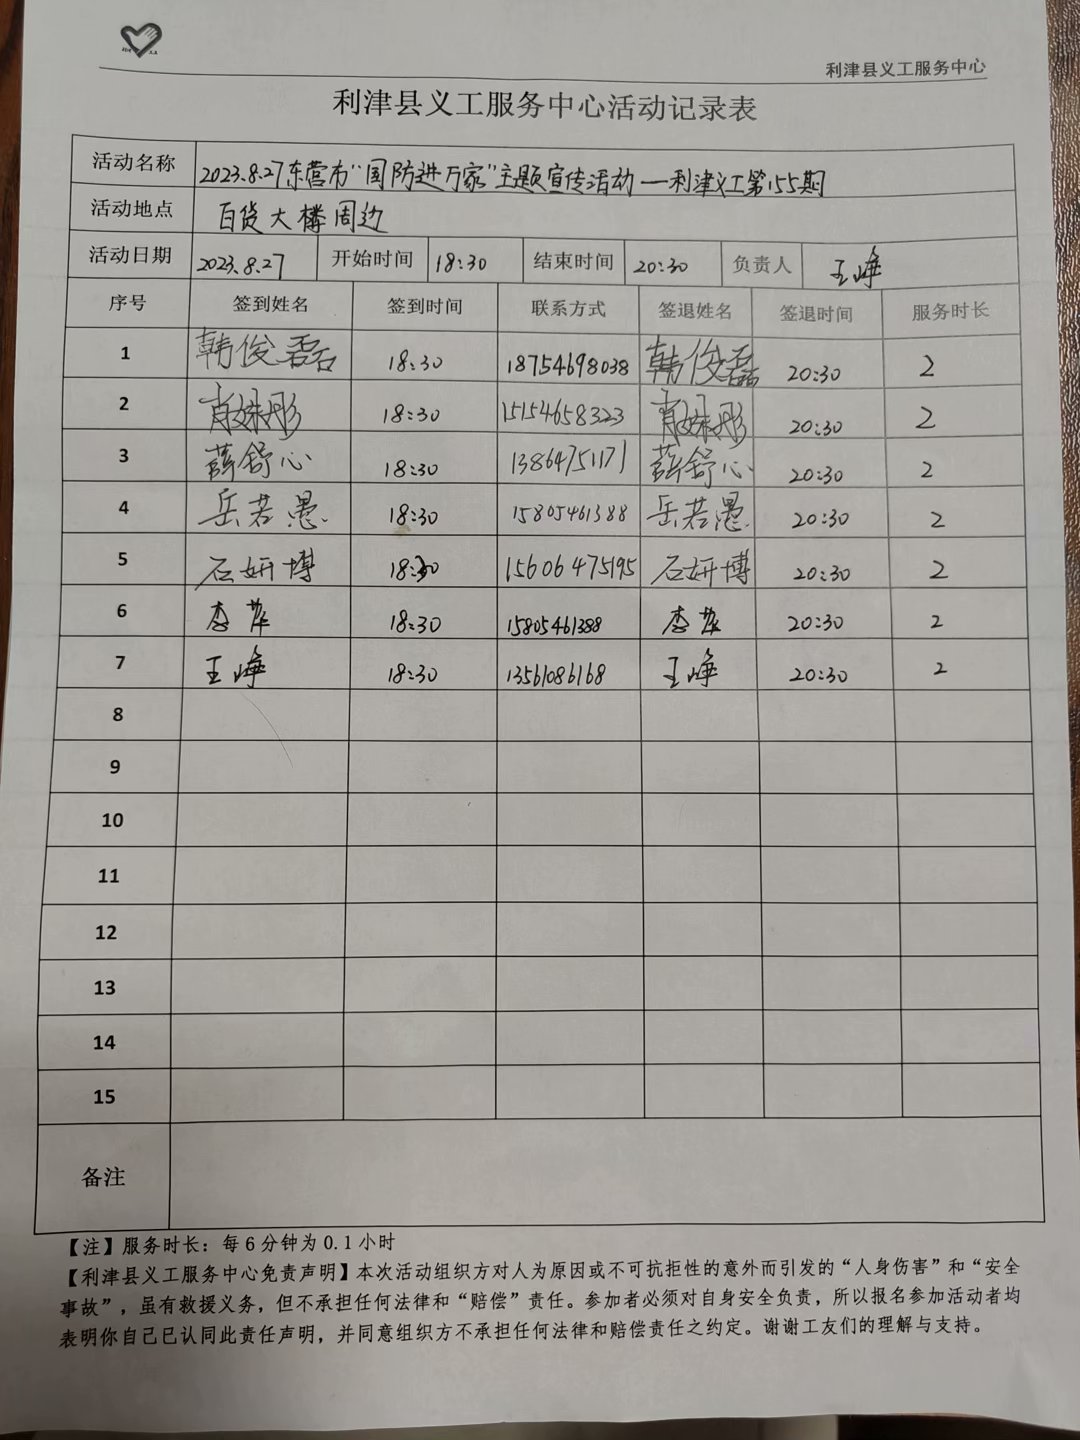 利津县义工服务中心
利津县义工服务中心活动记录表
活动名称 2023.8.27东营市“国防进万家”主题宣传活动—利津义工第155期
活动地点 百货大楼周边
活动日期 2023.8.27 开始时间 18:30 结束时间 20:30 负责人 王峥
序号 签到姓名 签到时间 联系方式 签退姓名 签退时间 服务时长
1 韩俊磊 18:30 18754698038 韩俊磊 20:30 2
2 肖姝彤 18:30 15154658323 肖姝彤 20:30 2
3 薛舒心 18:30 13864751171 薛舒心 20:30 2
4 岳若愚 18:30 15805461388 岳若愚 20:30 2
5 石妍博 18:30 15606475195 石妍博 20:30 2
6 李苹 18:30 15805461388 李苹 20:30 2
7 王峥 18:30 13561086168 王峥 20:30 2
8
9
10
11
12
13
14
15
备注
【注】服务时长：每6分钟为0.1小时
【利津县义工服务中心免责声明】本次活动组织方对人为原因或不可抗拒性的意外而引发的“人身伤害”和“安全
事故”，虽有救援义务，但不承担任何法律和“赔偿”责任。参加者必须对自身安全负责，所以报名参加活动者均
表明你自己已认同此责任声明，并同意组织方不承担任何法律和赔偿责任之约定。谢谢工友们的理解与支持。